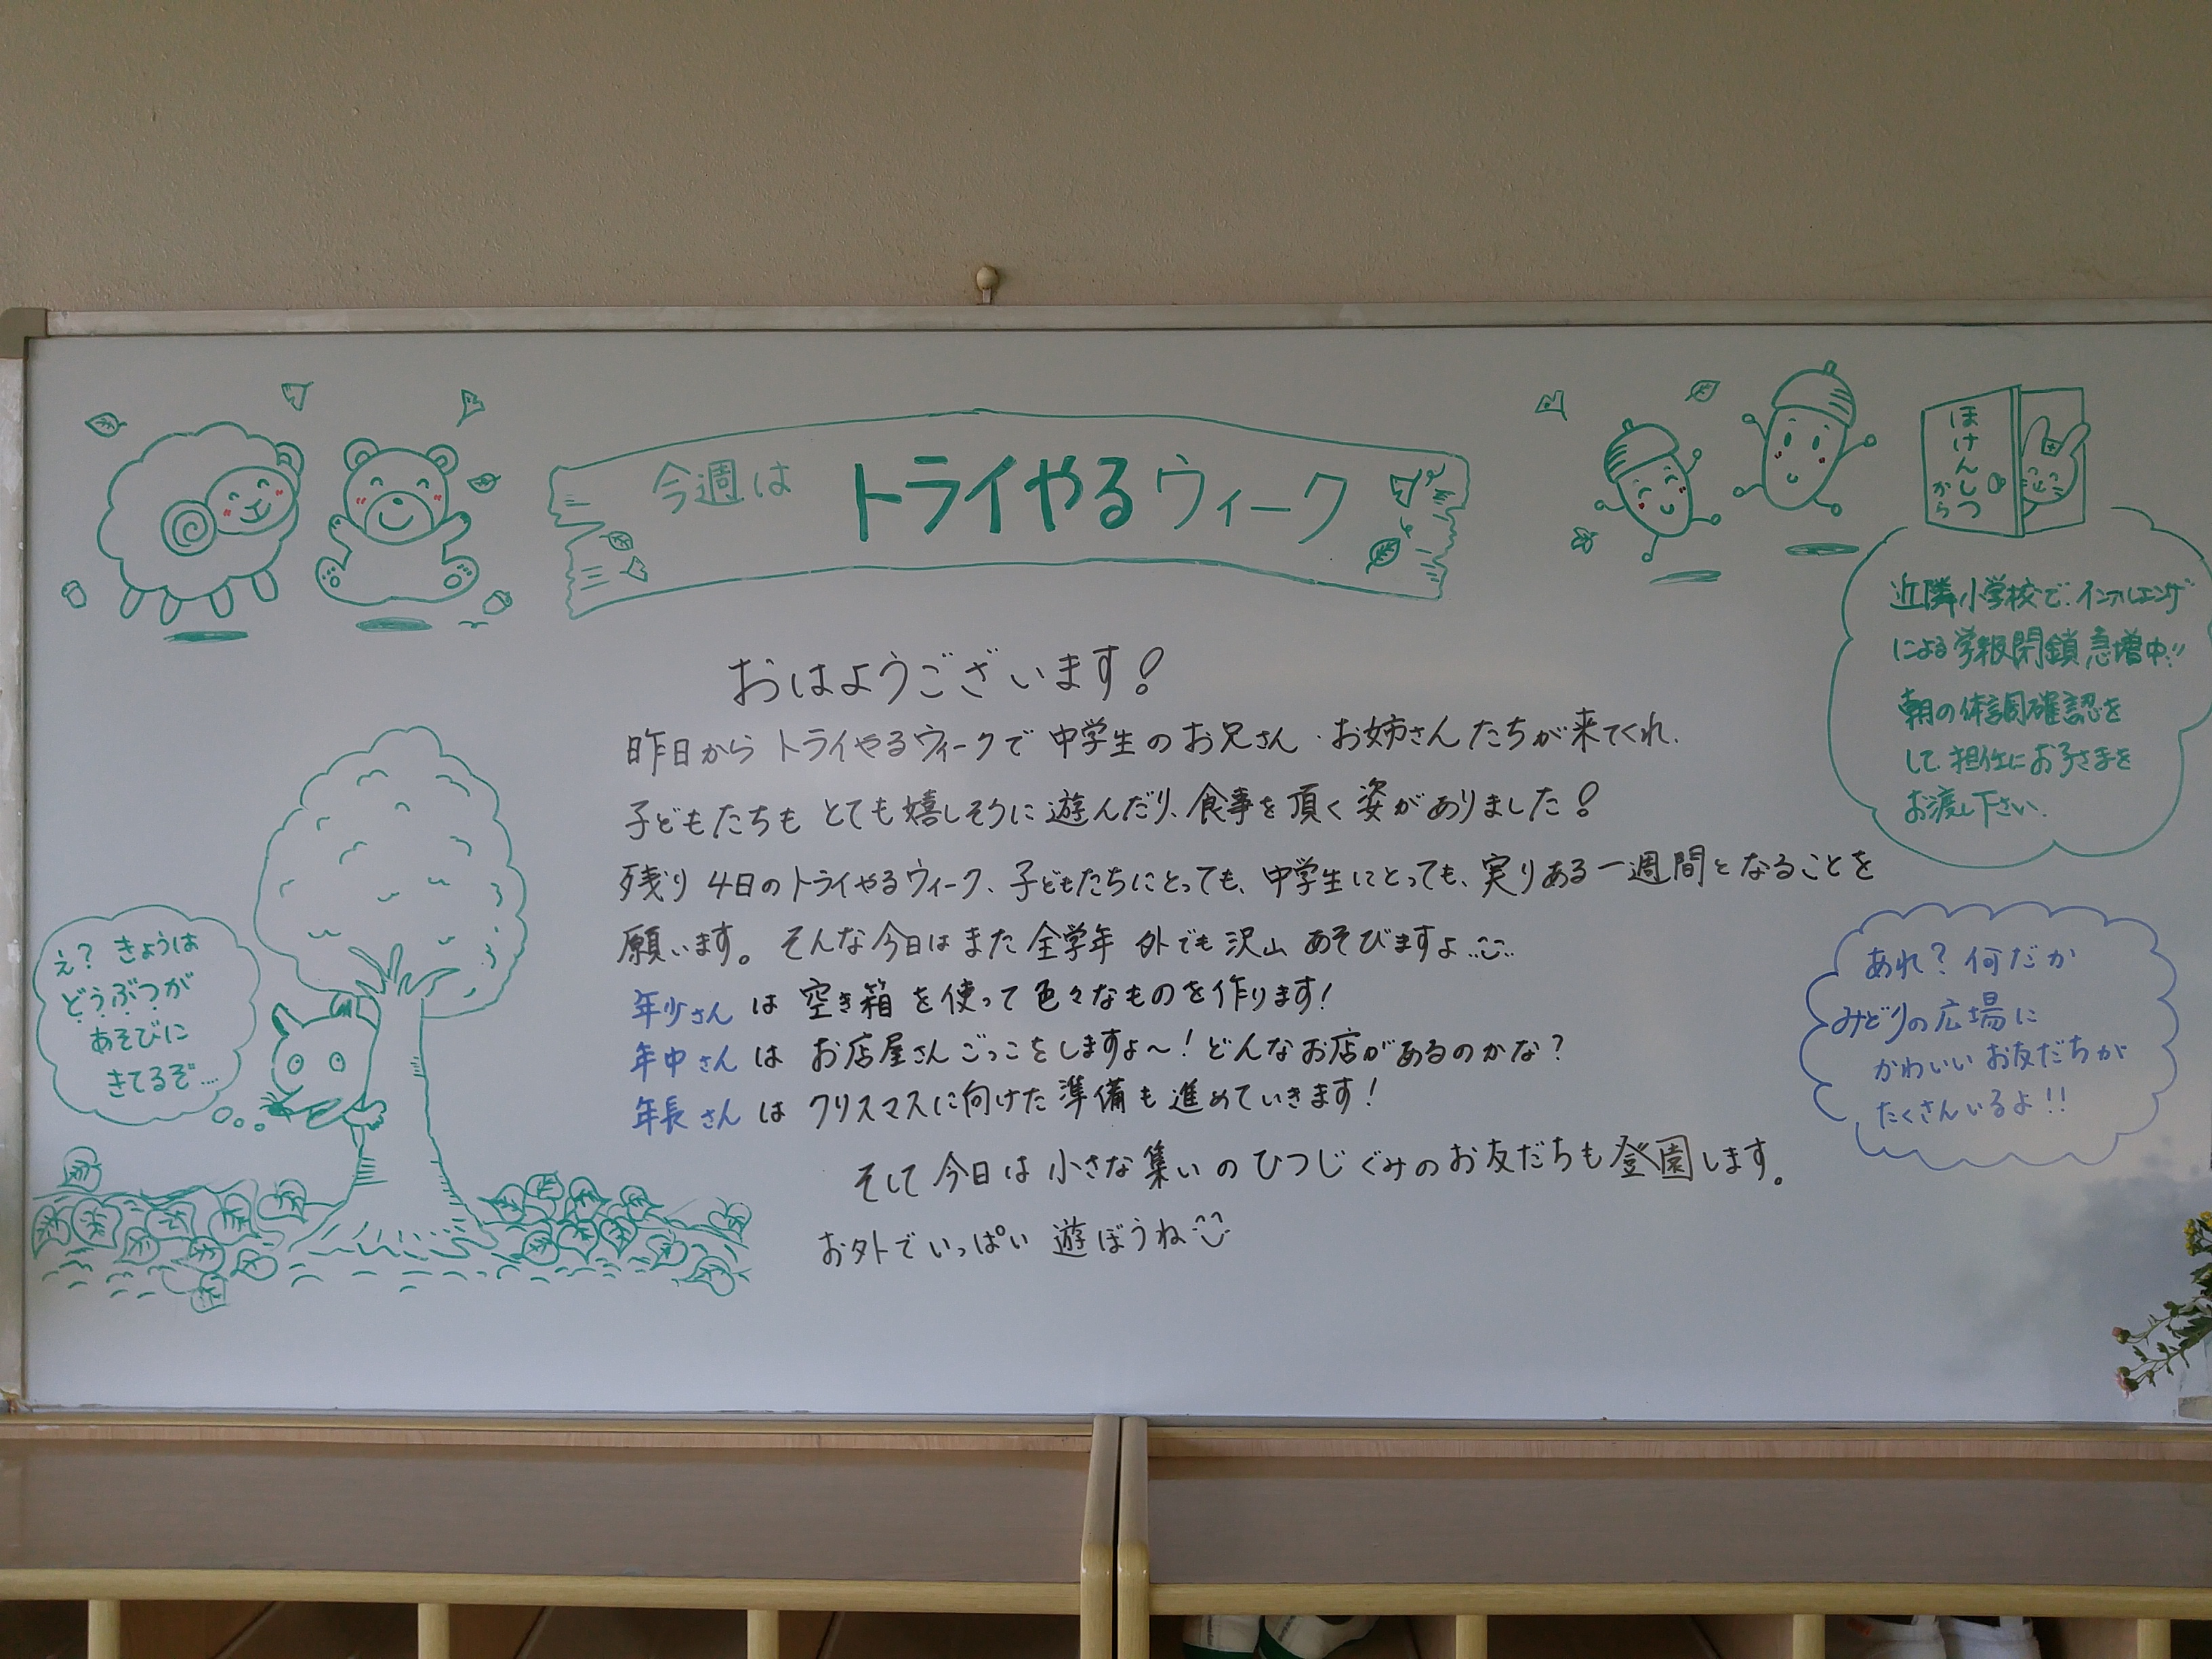 今週は トライやるウィーク
おはようございます!
昨日から トライやるウィークで 中学生の お兄さん・お姉さんたちが来てくれ、
子どもたちも とても嬉しそうに 遊んだり、食事を頂く姿がありました!
残り 4日のトライやるウィーク、子どもたちにとっても、中学生にとっても、実りある一週間となることを
願います。そんな今日は また 全学年 外でも 沢山 あそびますよ
年少さん は 空き箱を使って 色々なものを作ります!
年中さん は お店屋さんごっこをしますよ〜! どんなお店があるのかな?
年長さん は クリスマスに向けた準備も進めていきます!
そして 今日は 小さな集いの ひつじぐみのお友だちも 登園します。
お外でいっぱい 遊ぼうね
え? きょうは
どうぶつが
あそびに
きてるぞ…
ほけんしつ
から
近隣小学校で、インフルエンザ
による学級閉鎖 急増中!!
朝の体調確認を
して、担任にお子さまを
お渡し下さい。
あれ? 何だか
みどりの広場に
かわいい お友だちが
たくさんいるよ!!